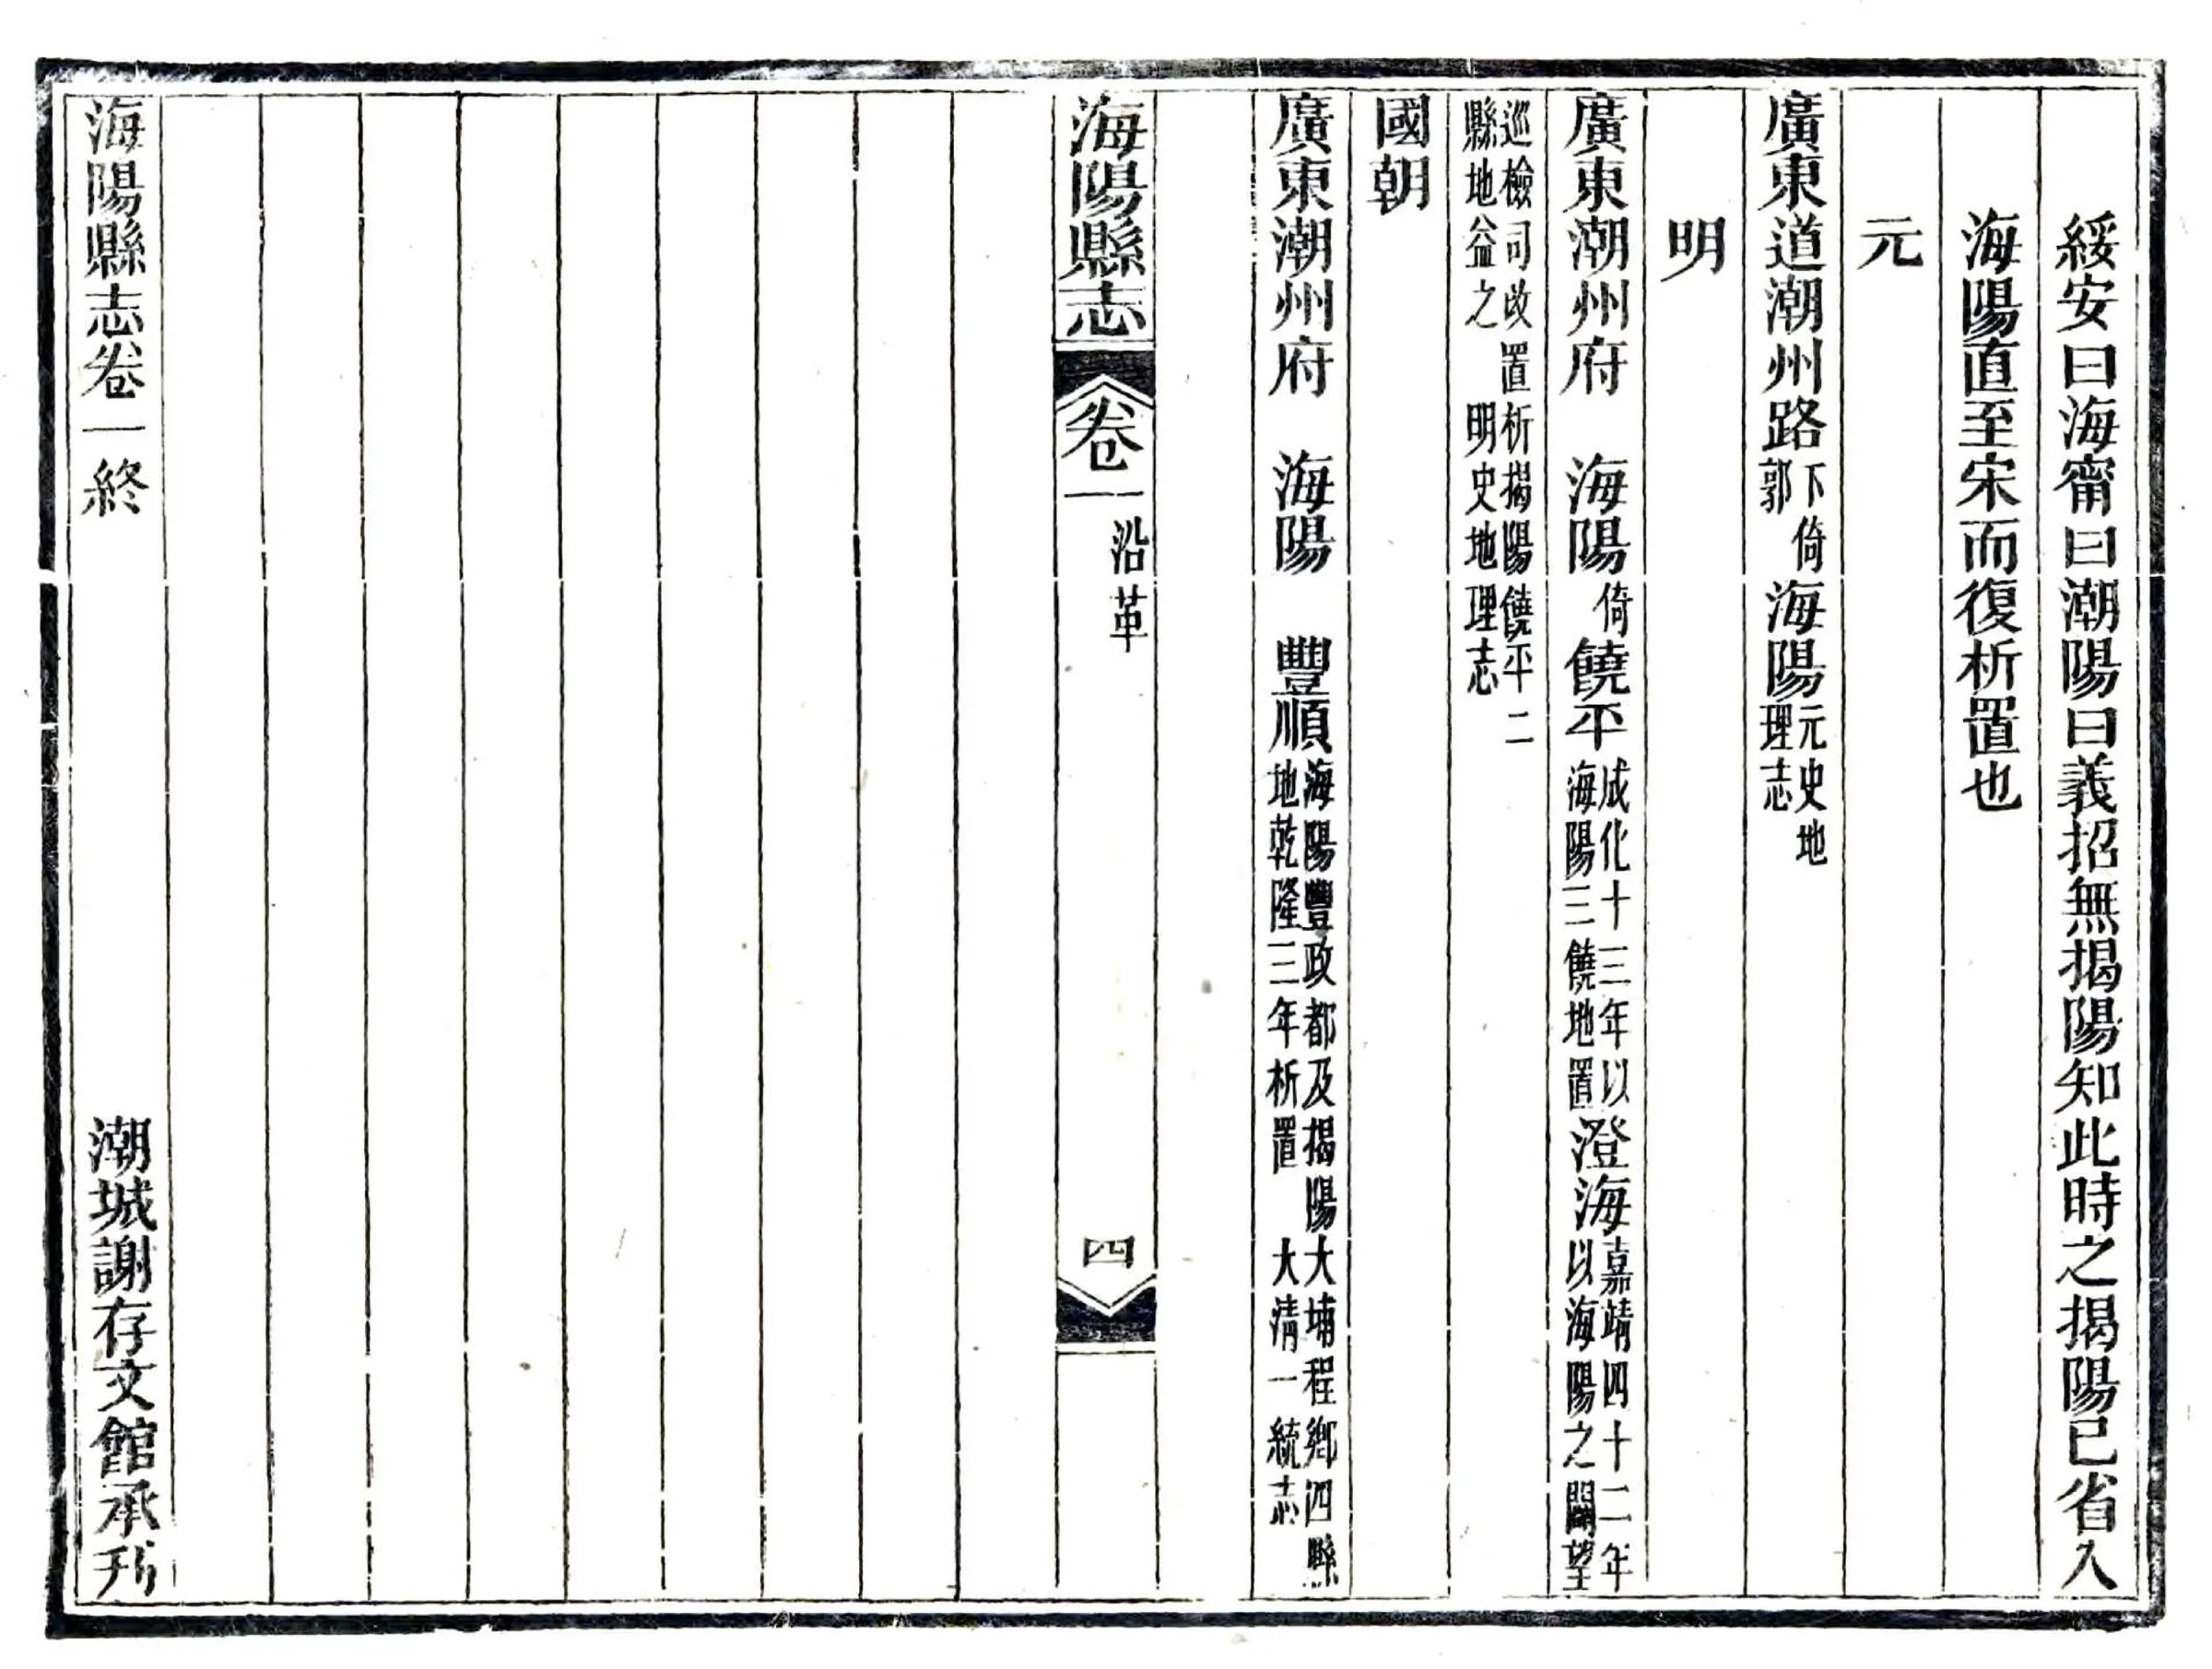 綏安曰海甯曰潮陽曰義招無揭陽知此時之揭陽已省入
海陽直至宋而復析置也
元
廣東道潮州路下倚郭海陽元史地理志
明
廣東潮州府　海陽倚饒平成化十三年以海陽三饒地置澄海嘉靖四十二年以海陽之闢望
巡檢司改置析揭陽饒平二縣地益之　明史地理志
國朝
廣東潮州府　海陽　豐順海陽豐政都及揭陽大埔程鄉四縣地乾隆三年析置　大清一統志
海陽縣志　卷一　沿革　四
海陽縣志卷一終　潮城謝存文館承刋